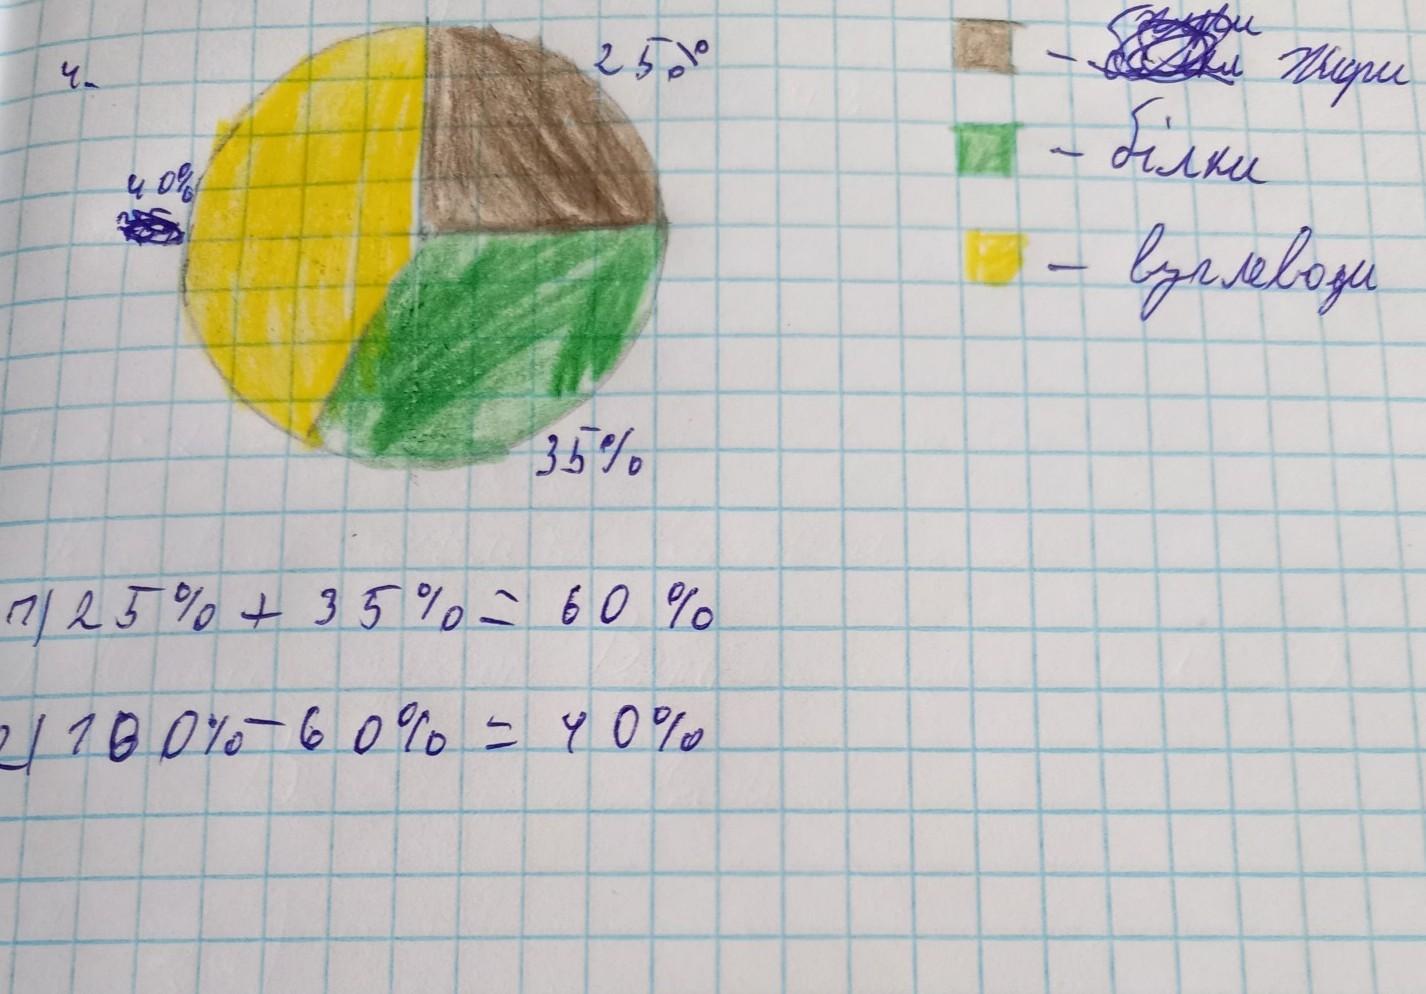 4.
25%
жири
білки
40%
вуглеводи
35%
1) 25% + 35% = 60%
2) 100% - 60% = 40%